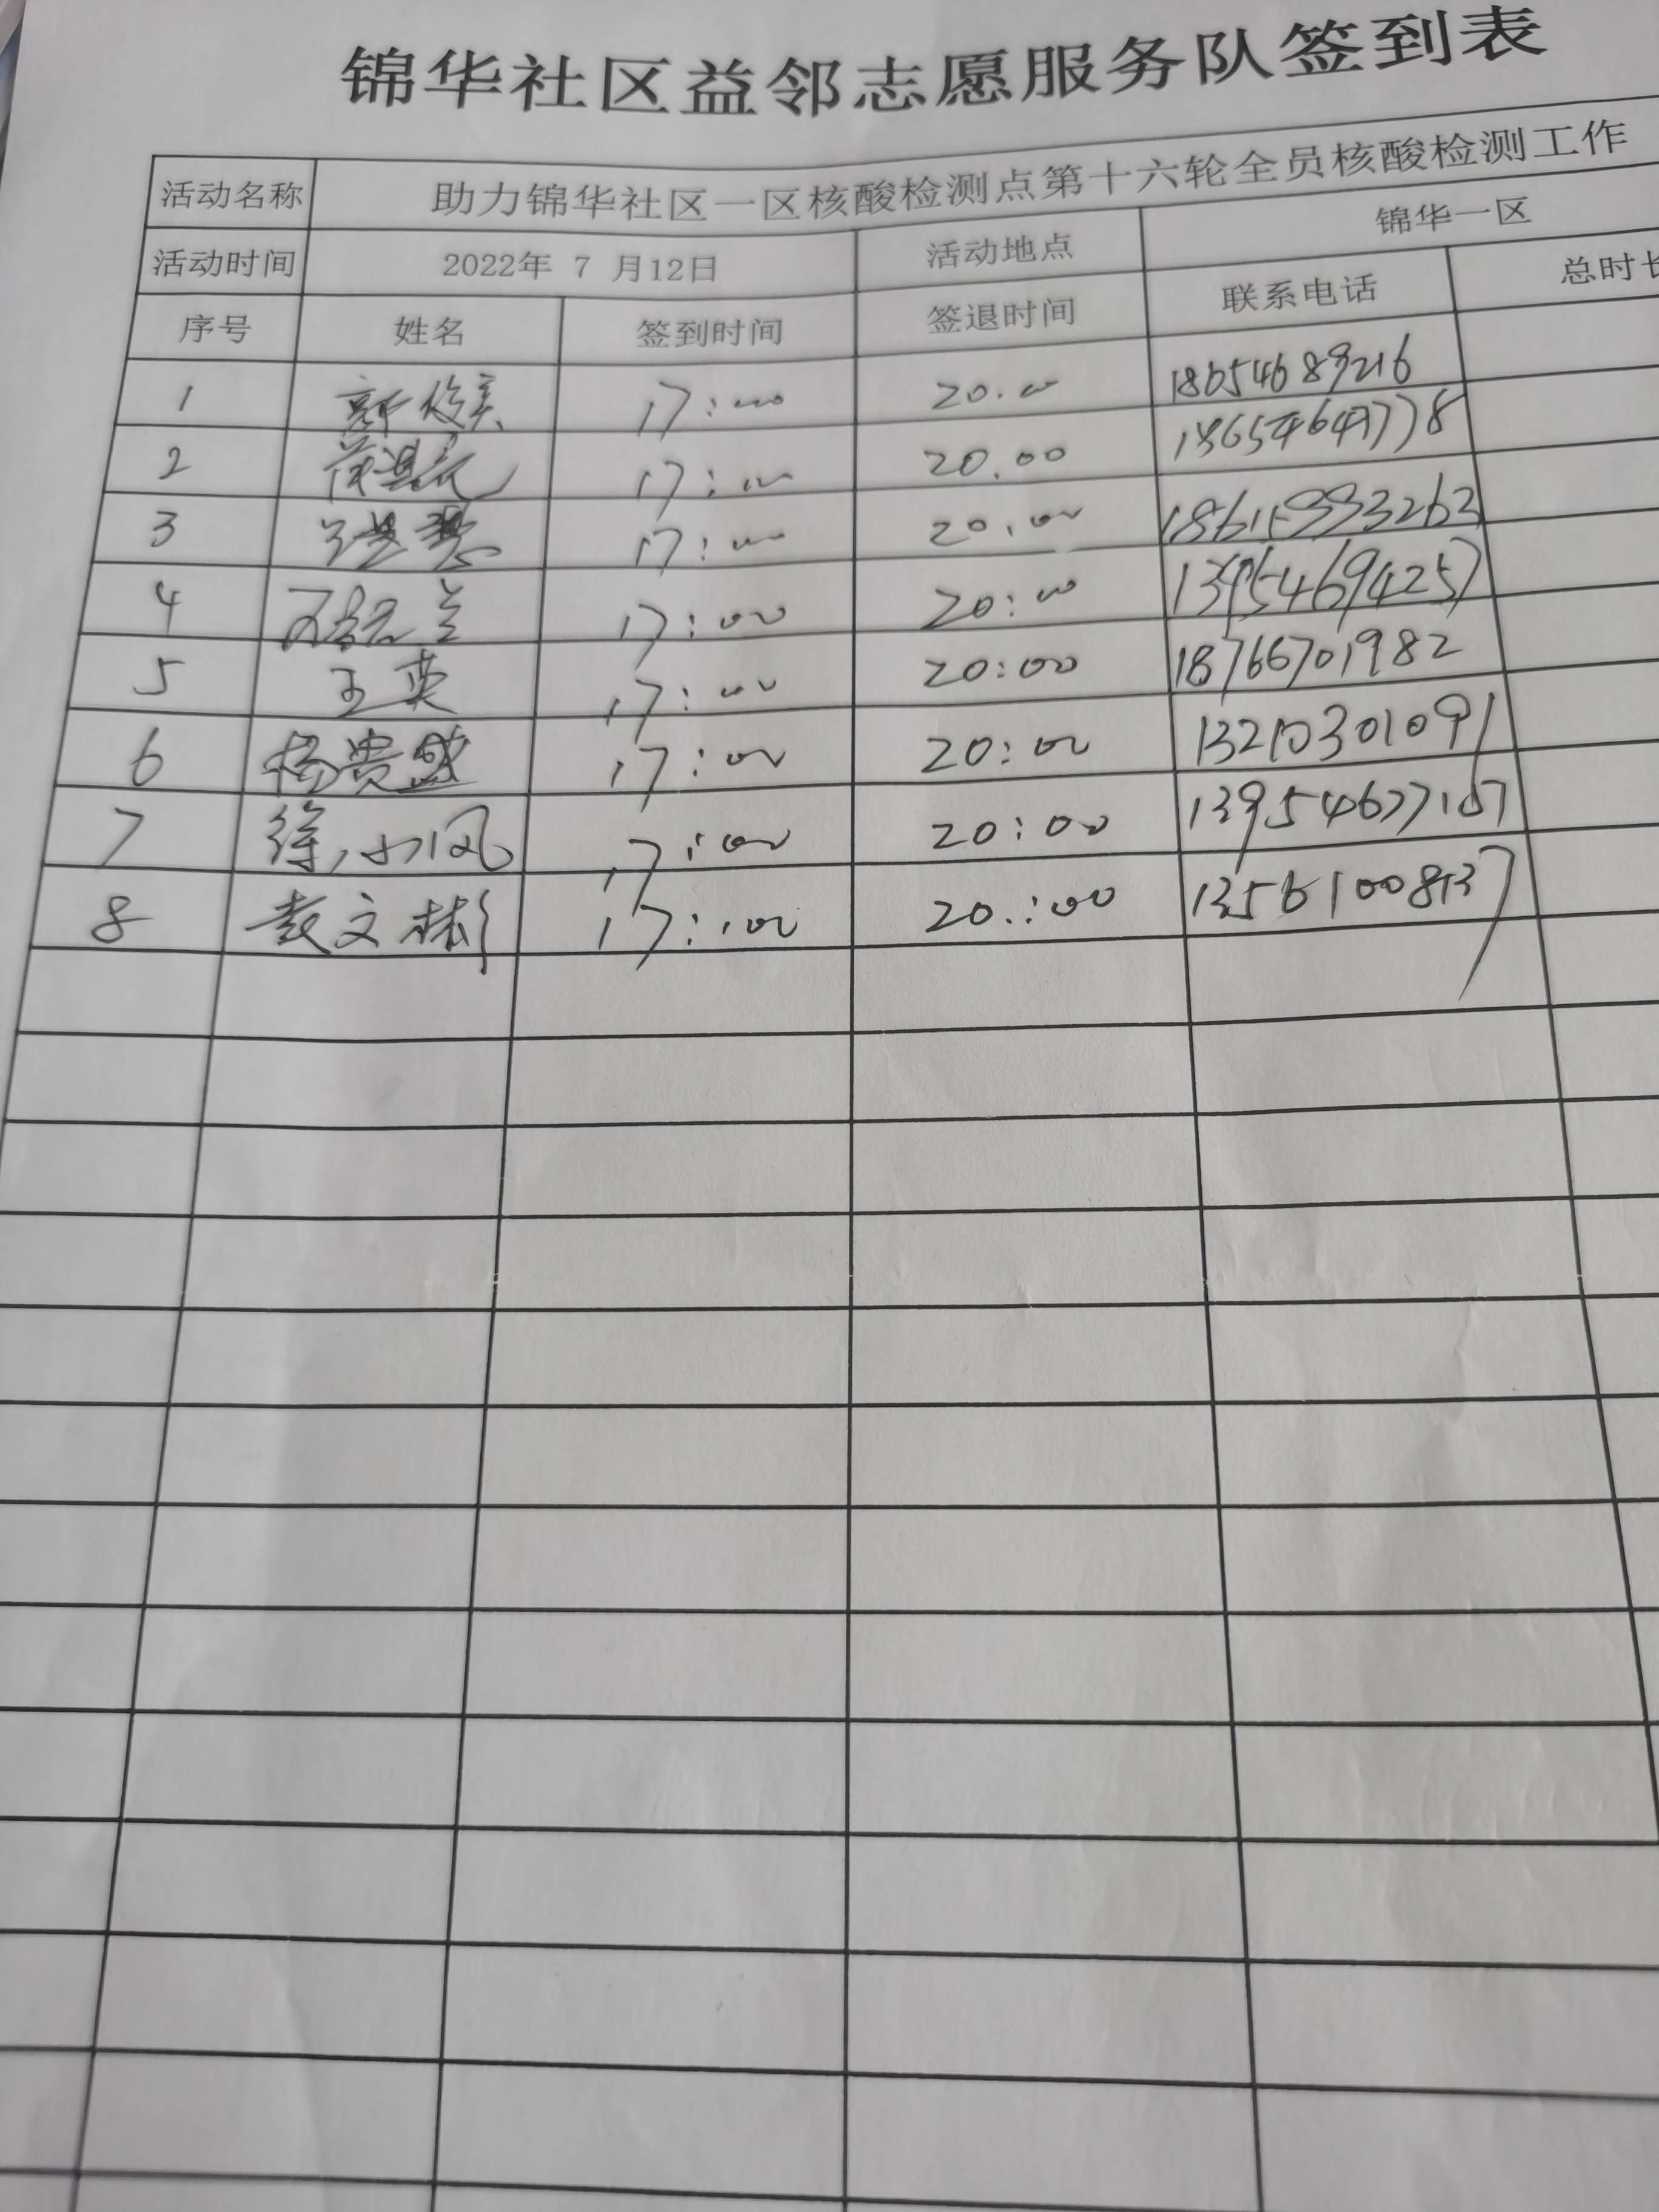 锦华社区益邻志愿服务队签到表
活动名称 助力锦华社区一区核酸检测点第十六轮全员核酸检测工作
活动时间 2022年 7 月12日 活动地点 锦华一区
序号 姓名 签到时间 签退时间 联系电话 总时长
1 17:00 20.00 18654689216
2 17:00 20.00
3 17:00 20.00
4 17:00 20:00 13954694257
5 王英 17:00 20:00 18766701982
6 杨贵盛 17:00 20:00 13210301091
7 徐小风 17:00 20:00 13954677107
8 袁文彬 17:00 20:00